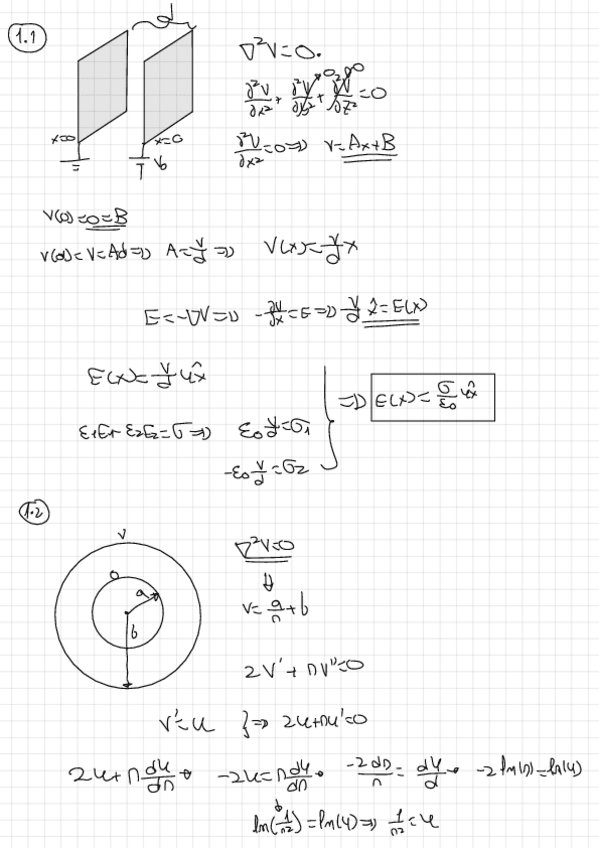 1.1
d
∇²V=0.
∂²V/∂x² + ∂²V/∂y² + ∂²V/∂z² =0
0 0
x=0 x=0
V₀
∂²V/∂x² =0 => V=Ax+B
V(0)=0=B
V(d)=V=Ad => A=V/d => V(x)=V/d x
E=-∇V => -∂V/∂x=E => V/d x̂=E(x)
E(x)=V/d ûx
=> E(x)=σ/ε0 ûx
ε1E1-ε2E2=σ => ε0 V/d=σ1
-ε0 V/d=σ2
1.2
V
0
a
b
∇²V=0
⇓
V= a/r +b
2V'+rV''=0
V'=u } => 2u+ru'=0
2u+r du/dr → -2u=r du/dr → -2dr/r = du/d → -2ln(r)=ln(u)
ln(1/r²)=ln(u) => 1/r²=u